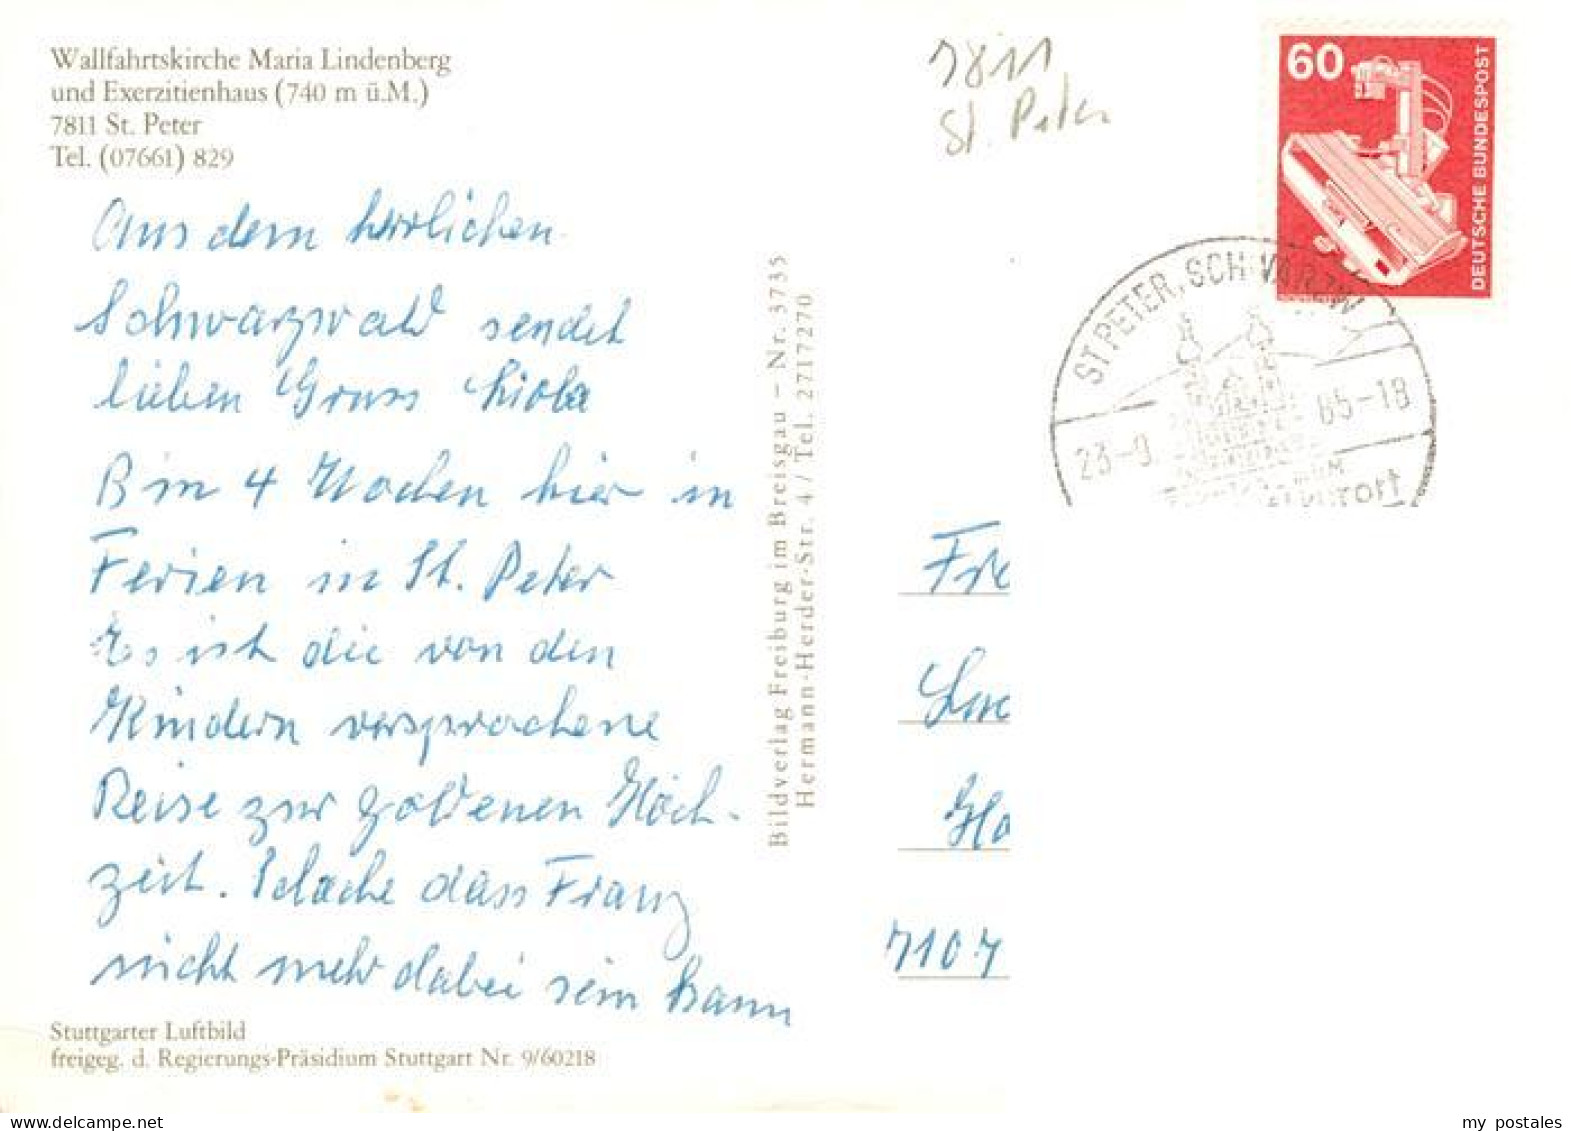 Wallfahrtskirche Maria Lindenberg
und Exerzitienhaus (740 m ü.M.)
7811 St. Peter
Tel. (07661) 829
Aus dem herrlichen
Schwarzwald sendet
lieben Gruss
Bin 4 Wochen hier in
Ferien in St. Peter
Es ist die von den
Kindern versprochene
Reise zur goldenen Hoch-
zeit. Schade dass Franz
nicht mehr dabei sein kann
Stuttgarter Luftbild
freigeg. d. Regierungs-Präsidium Stuttgart Nr. 9/60218
Bildverlag Freiburg im Breisgau – Nr. 3735
Hermann-Herder-Str. 4 / Tel. 2717270
7811
St. Peter
60
DEUTSCHE BUNDESPOST
ST PETER, SCHWARZW
23-9
85-18
Fre
Ho
7107
my postales